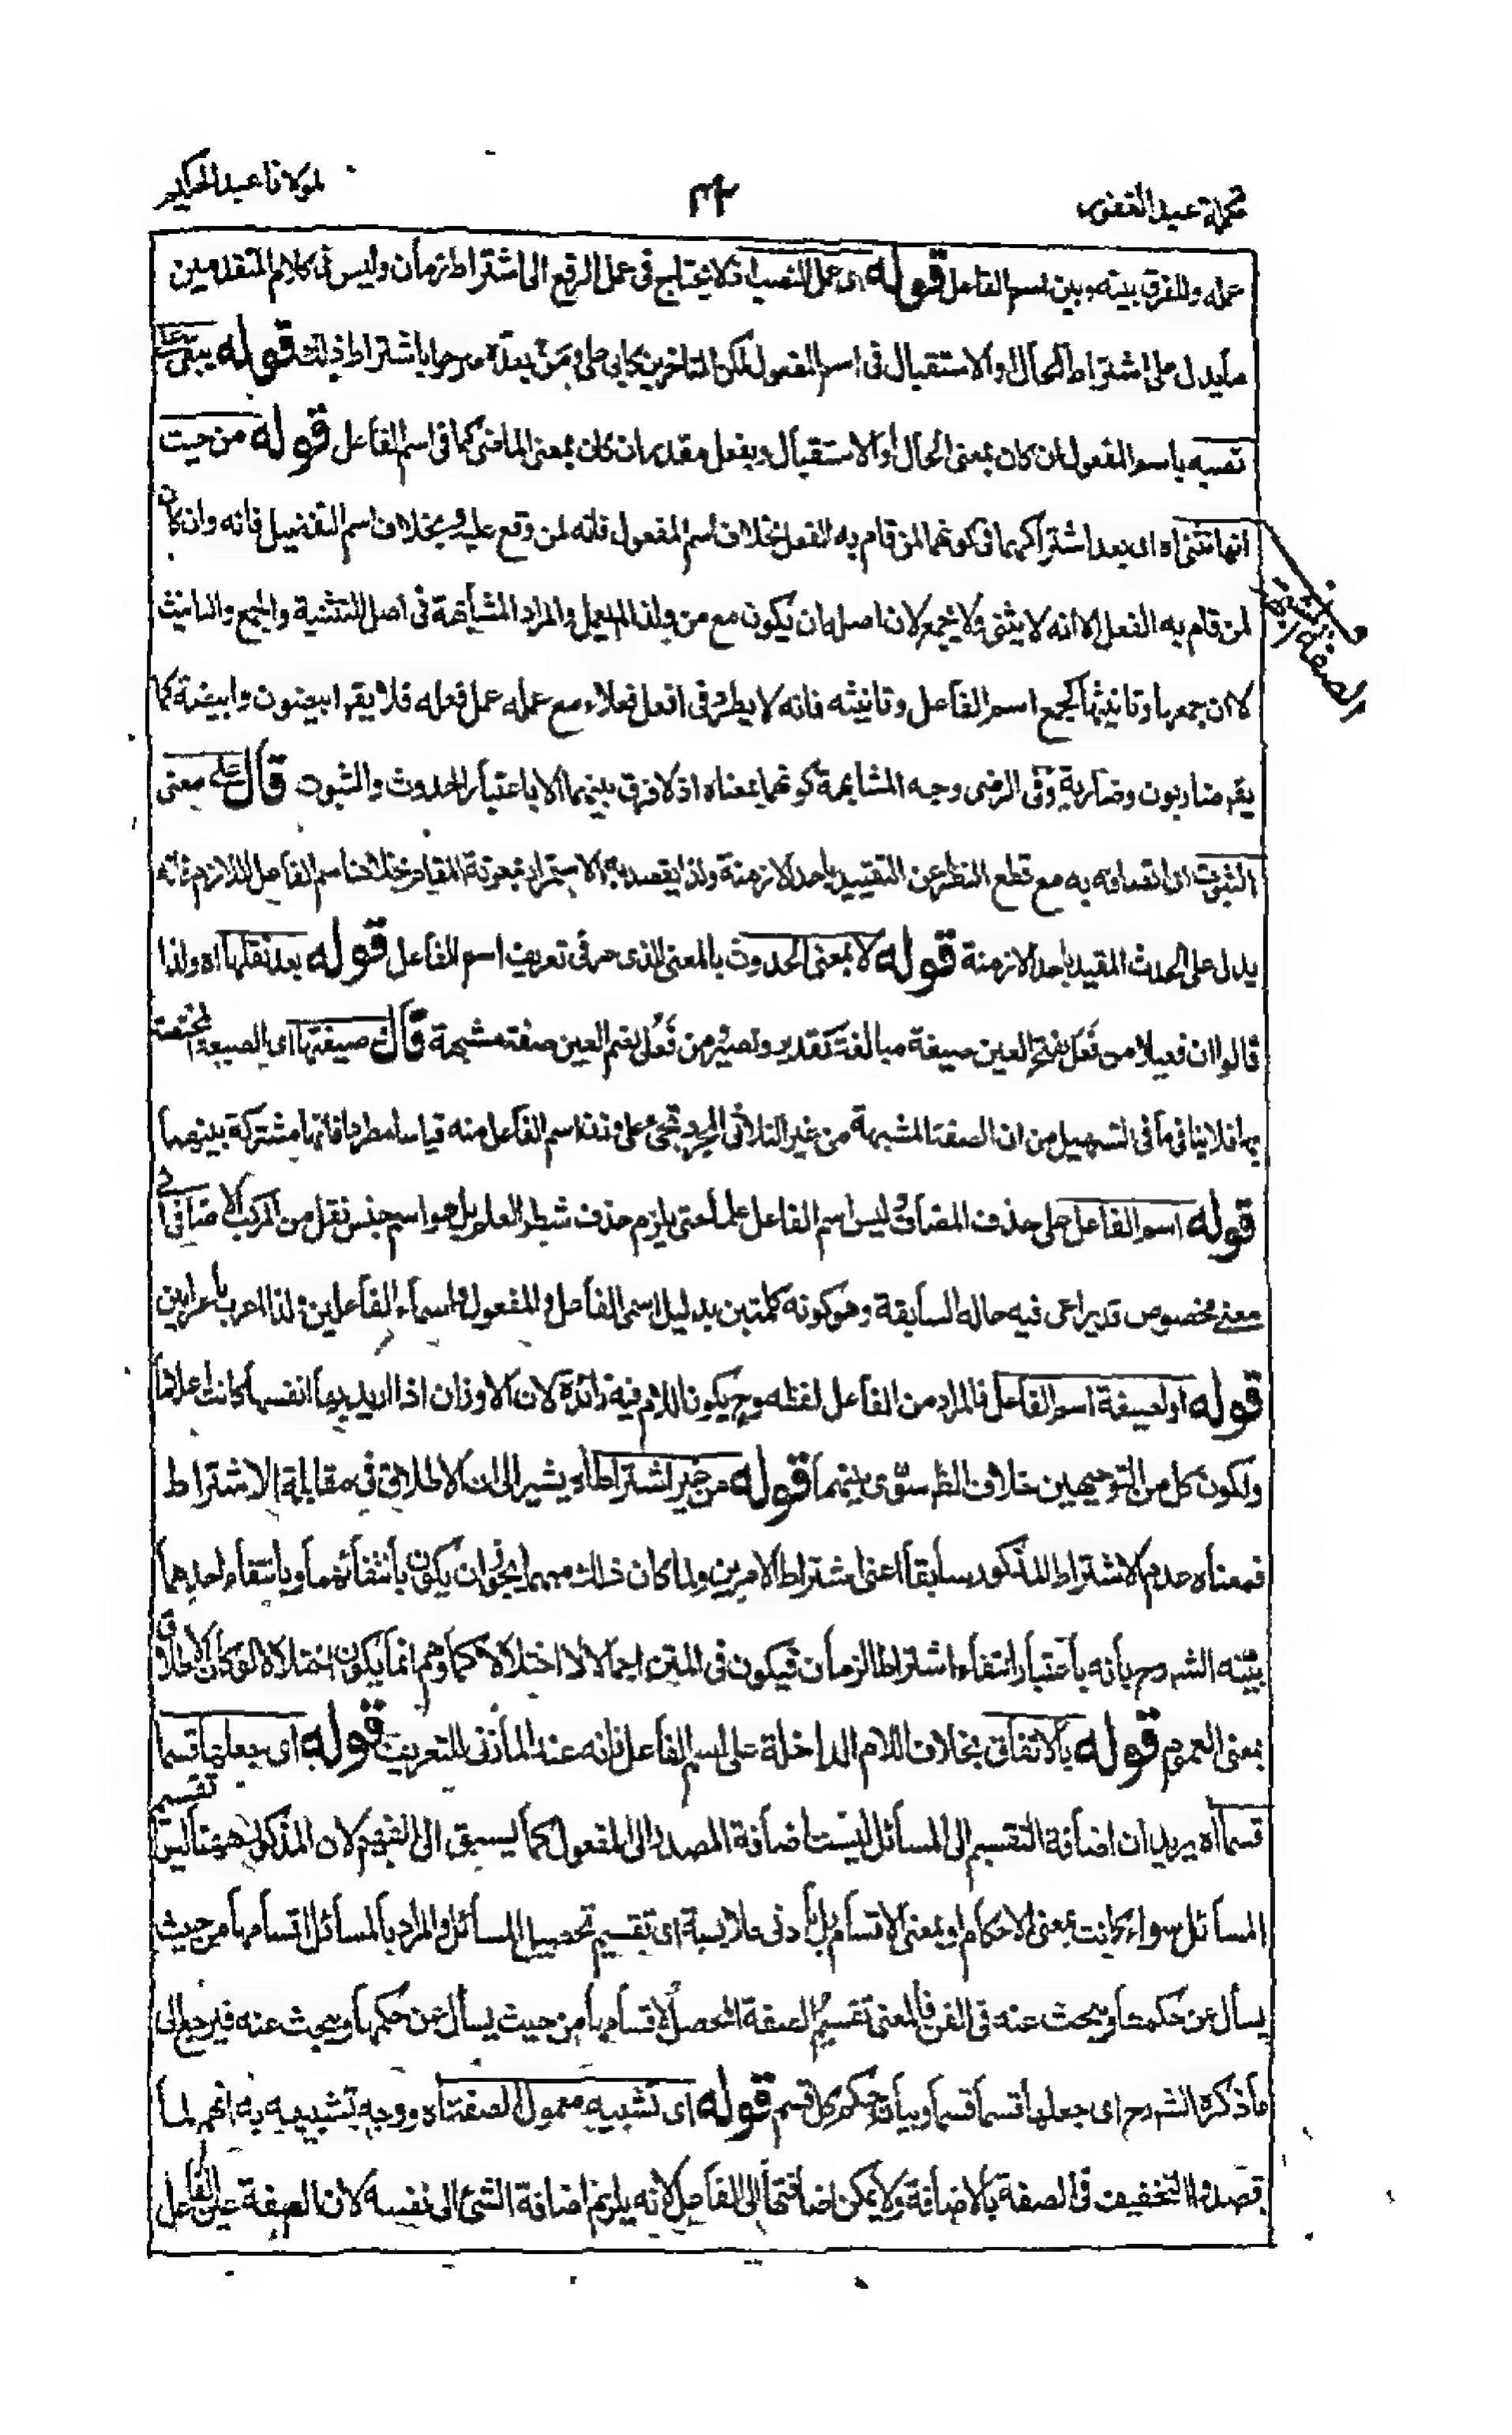 تكملة عبد الغفور
لمولانا عبد الحكيم
عمله وللفرق بينه وبين اسم الفاعل قوله اى عمل النصب فلا يحتاج فى عمل الرفع الى اشتراط زمان وليس فى كلام المتقدمين
ما يدل على اشتراط الحال والاستقبال فى اسم المفعول لكن المتاخرين كابى على ومن بعده صرحوا باشتراط ذلك قوله يبقى على
نصبه باسم المفعول ان كان بمعنى الحال او الاستقبال وبفعل مقدر ان كان بمعنى الماضى كما فى اسم الفاعل قوله من حيث
الصفة المشبهة
انها تثنى اه اى بعد اشتراكهما فى كونهما لمن قام به الفعل بخلاف اسم المفعول فانه لمن وقع عليه وبخلاف اسم التفضيل فانه وان كان
لمن قام به الفعل الا انه لا يثنى ولا يجمع لان اصله ان يكون مع من ولذا لم يعمل والمراد المشابهة فى اصل التثنية والجمع والتانيث
لا ان جمعها وتانيثها كجمع اسم الفاعل وتانيثه فانه لا يطرد فى افعل فعلاء مع عمله عمل فعله فلا يقم ابيضون وابيضة كما
يقم ضاربون وضاربة وفى الرضى وجه المشابهة كونهما بمعناه اذ لا فرق بينهما الا باعتبار الحدوث والثبوت قال على معنى
الثبوت اى اتصافه به مع قطع النظر عن التقييد باحد الازمنة ولذا يقصد به الاستمرار بمعونة المقام بخلاف اسم الفاعل اللازم فانه
يدل على الحدث المقيد باحد الازمنة قوله لا بمعنى الحدوث بالمعنى الذى مر فى تعريف اسم الفاعل قوله بعد نقلها اه ولذا
قالوا ان فعيلا من فعل بفتح العين صيغة مبالغة كقدير ونصير من فعل بضم العين صفة مشبهة قال صيغتها اى الصيغة المختصة
بها فلا ينافى ما فى التسهيل من ان الصفة المشبهة من غير الثلاثى المجرد تجئ على وزن اسم الفاعل منه قياسا مطردا فانها مشتركة بينهما
قوله اسم الفاعل على حذف المضاف وليس اسم الفاعل علما حتى يلزم حذف شطر العلم بل هو اسم جنس نقل من المركب الاضافى الى
معنى مخصوص قد يراعى فيه حاله السابقة وهو كونه كلمتين بدليل اسمى الفاعل والمفعول واسماء الفاعلين ولذا اعرب باعرابين
قوله او لصيغة اسم الفاعل فالمراد من الفاعل لفظه وح يكون اللام فيه زائدة لان الاوزان اذا اريد بها انفسها كانت اعلاما
ولكون كل من التوجيهين خلاف الظ سوى بينهما قوله من غير اشتراط اه يشير الى ان الاطلاق فى مقابلة الاشتراط
فمعناه عدم الاشتراط المذكور سابقا اعنى اشتراط الامرين ولما كان ذلك مبهما لجواز ان يكون بانتفائهما وبانتفاء احدهما
بينه الشرح بانه باعتبار انتفاء اشتراط الزمان فيكون فى المتن اجمالا لا اختلالا كما وهم انما يكون اختلالا لو كان الاطلاق
بمعنى العموم قوله بالاتفاق بخلاف اللام الداخلة على اسم الفاعل فانه عند المازنى للتعريف قوله اى جعلها قسما
قسما اه يريد ان اضافة التقسيم الى المسائل ليست اضافة المصدر الى المفعول كما يسبق الى الفهم لان المذكور ههنا ليس تقسيم
المسائل سواء كانت بمعنى الاحكام او بمعنى الاقسام بل بادنى ملابسة اى تقسيم تحصيل المسائل والمراد بالمسائل اقسامها من حيث
يسأل عن حكمها ويبحث عنه فى الفن فالمعنى تقسيم الصفة المحصل لاقسامها من حيث يسأل عن حكمها ويبحث عنه فيرجع الى
ما ذكره الشرح اى جعلها قسما قسما وبيان حكم كل قسم قوله اى تشبيه معمول الصفة اه ووجه تشبيهه به انهم لما
قصدوا التخفيف فى الصفة بالاضافة ولا يمكن اضافتها الى الفاعل لانه يلزم اضافة الشئ الى نفسه لان الصفة عين الفاعل